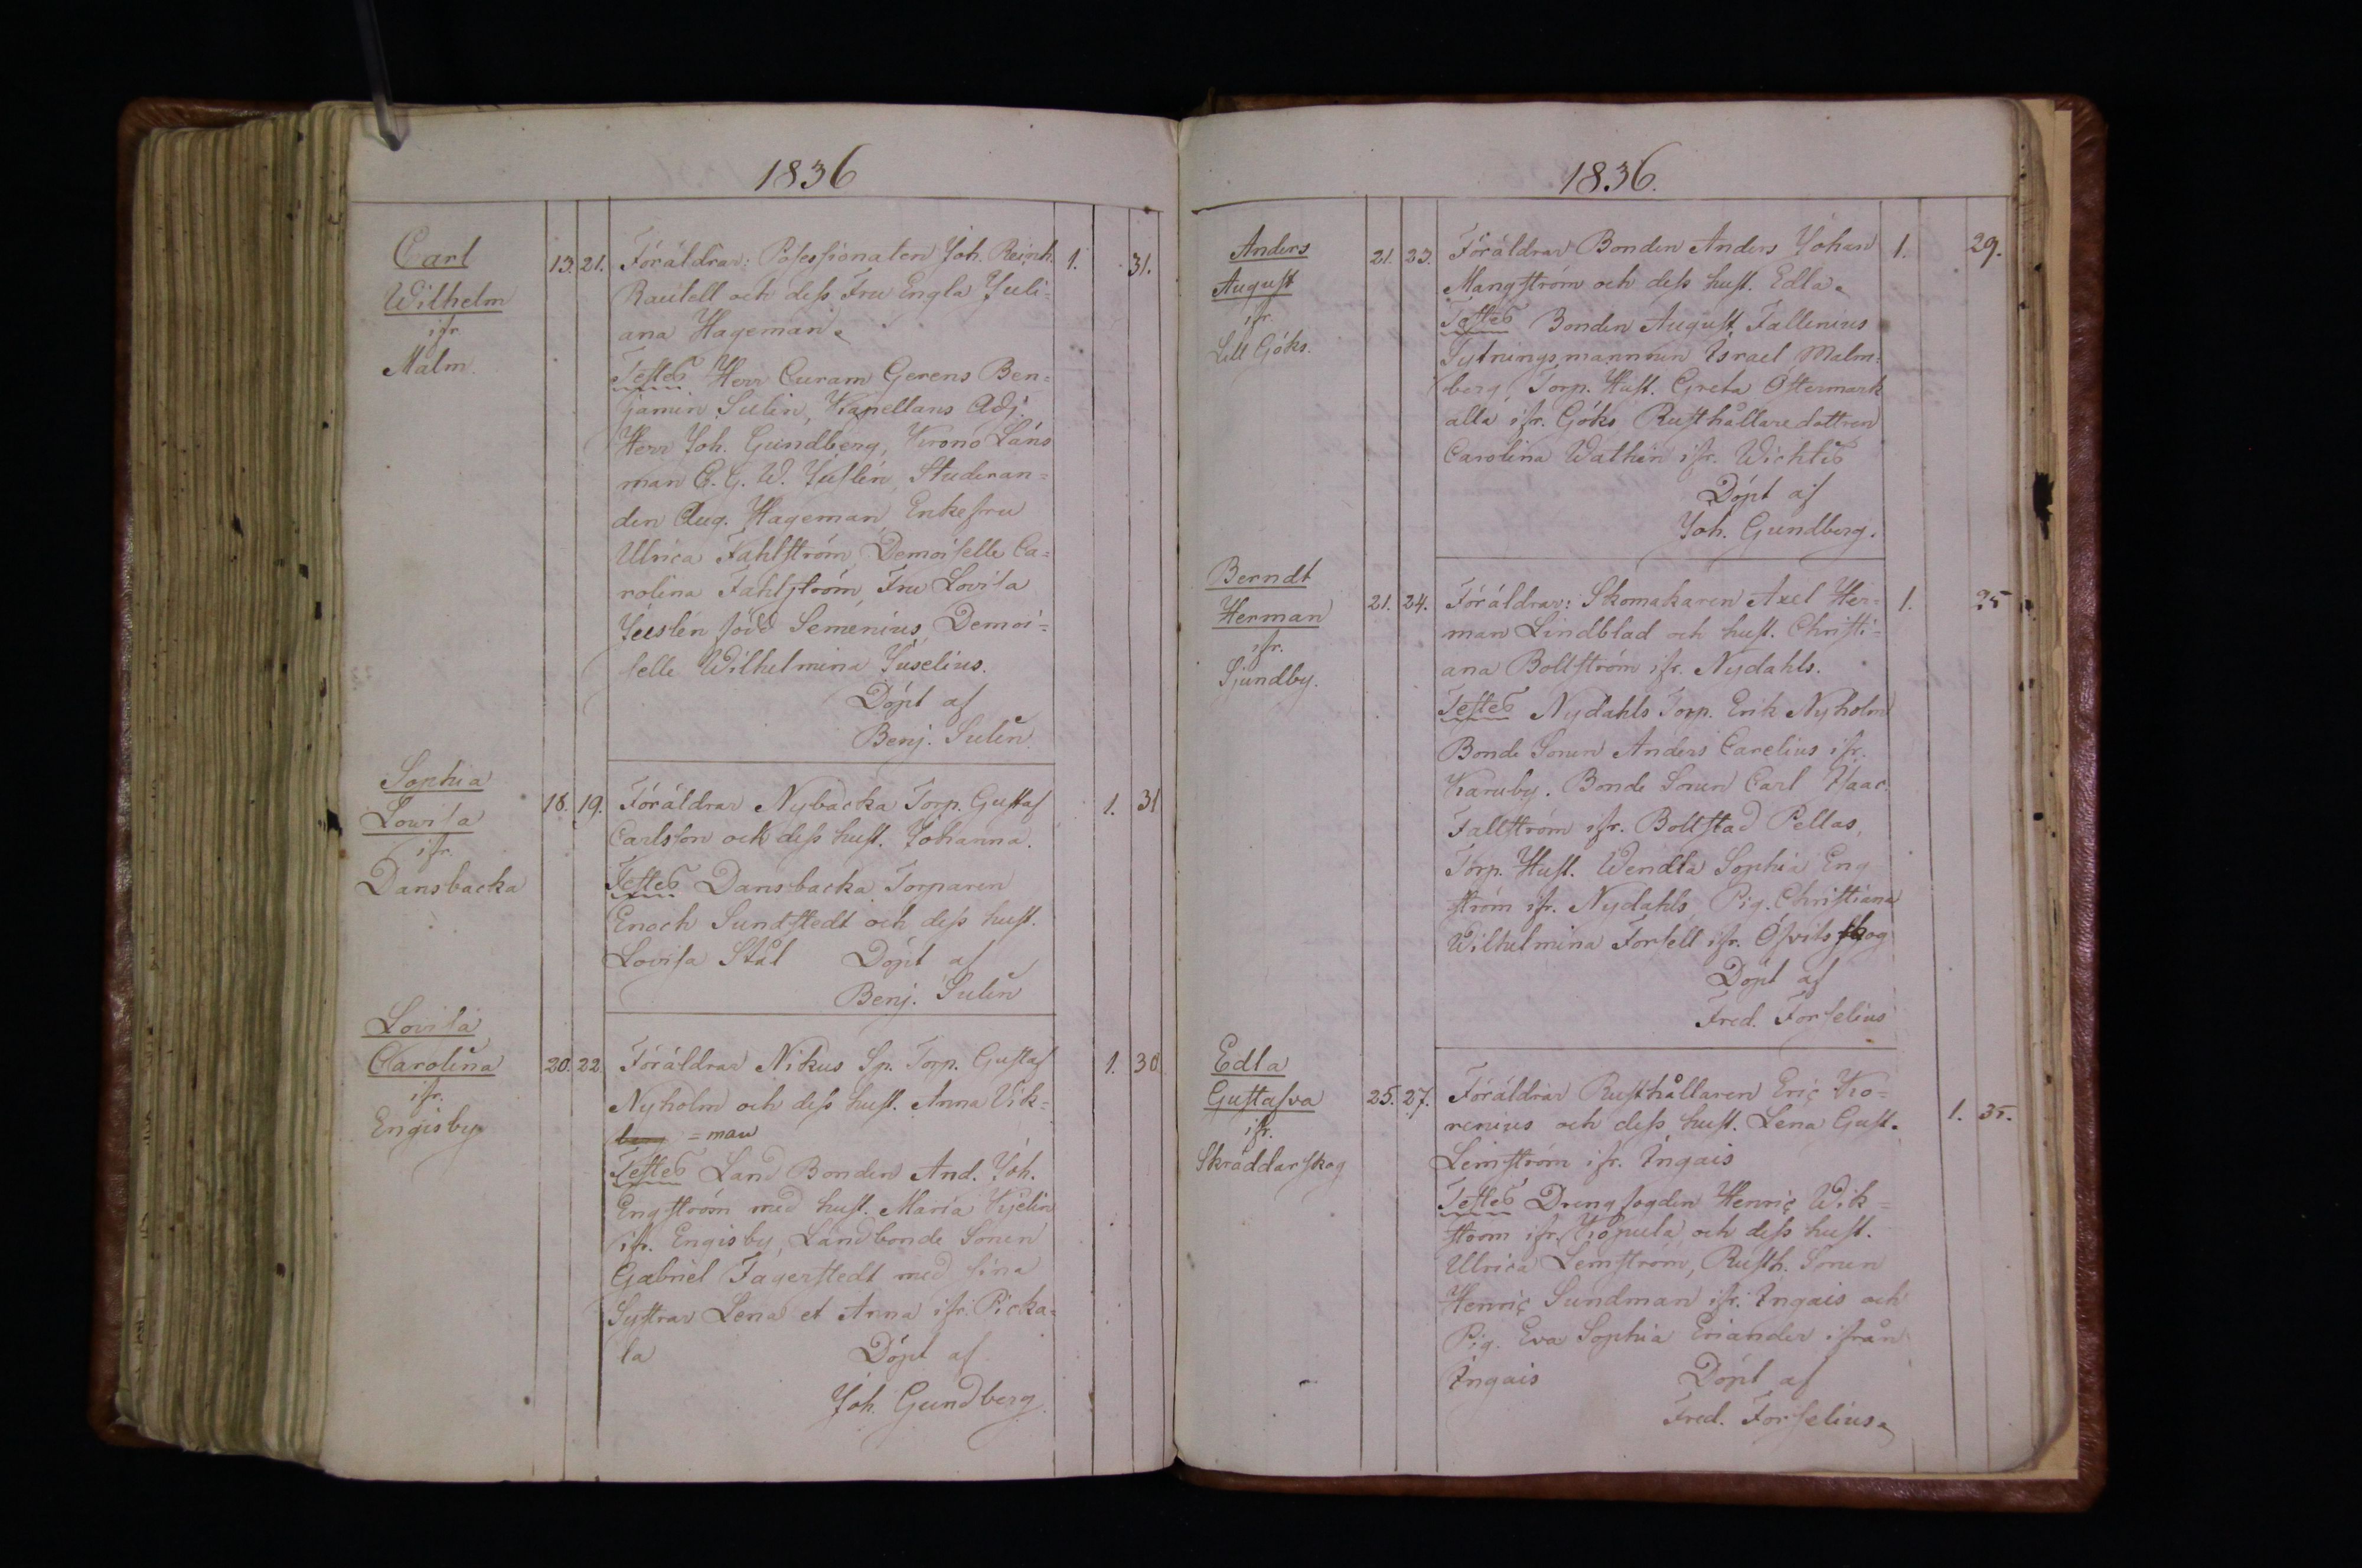 1836
Carl
Wilhelm
ifr
Malm.
13. 21. Föräldrar: Possessionaten Joh. Reinh. 1. 31.
Rautell och dess Fru Engla Juli=
ana Hageman.
Testes Herr Curam Gerens Ben=
jamin Sulin, Kapellans Adj.
Herr Joh. Gundberg, Krono Läns
man C. G. W. Juslén, Studeran=
den Aug. Hageman, Enkefru
Ulrica Fahlström, Demoiselle Ca=
rolina Fahlström, Fru Lovisa
Juslén född Semenius, Demoi=
selle Wilhelmina Juselius.
Döpt af
Benj. Sulin
Sophia
Lowisa
ifr.
Dansbacka
18. 19. Föräldrar Nybacka Torp. Gustaf 1. 31
Carlsson och dess hust. Johanna.
Testes Dansbacka Torparen
Enoch Sundstedt och dess hust.
Lovisa Stål Döpt af
Benj. Sulin
Lovisa
Carolina
ifr.
Engisby
20. 22 Föräldrar Nikus Sp. Torp. Gustaf 1. 30
Nyholm och dess hust. Anna Vik=
berg =man
Testes Land Bonden And. Joh.
Engström med hust. Maria Kjelin
ifr. Engisby, Landbonde Sonen
Gabriel Fagerstedt med sina
Systrar Lena et Anna ifr. Picka=
la Döpt af
Joh. Gundberg
1836.
Anders
August
ifr.
Lill Göks.
21. 23. Föräldrar Bonden Anders Johan 1. 29.
Mangström och dess hust. Edla.
Testes Bonden August Fallenius
Sytningsmannen Israel Malm=
berg, Torp. Hust. Greta Östermark
alla ifr. Göks, Rusthållaredottren
Carolina Wathén ifr. Wichtis
Döpt af
Joh. Gundberg.
Berndt
Herman
ifr.
Sjundby.
21. 24. Föräldrar: Skomakaren Axel Her= 1. 25
man Lindblad och hust. Christi=
ana Bollström ifr. Nydahls.
Testes Nydahls Torp. Erik Nyholm
Bonde Sonen Anders Carelius ifr.
Karuby. Bonde Sonen Carl Isaac
Fallström ifr. Bollstad Pellas,
Torp. Hust. Wendla Sophia Eng
ström ifr. Nydahls, Pig. Christiana
Wilhelmina Forsell ifr. Öfvitsskog
Döpt af
Fred. Forselius
Edla
Gustafva
ifr.
Skräddarskog
25. 27. Föräldrar Rusthållaren Eric Ko= 1. 35.
renius och dess hust. Lena Gust.
Lemström ifr. Ingais
Testes Drengfogden Henric Wik=
ström ifr. Kopula och dess hust.
Ulrica Lemström, Rusth. Sonen
Henric Sundman ifr. Ingais och
Pig. Eva Sophia Eriander ifrån
Ingais Döpt af
Fred. Forselius.